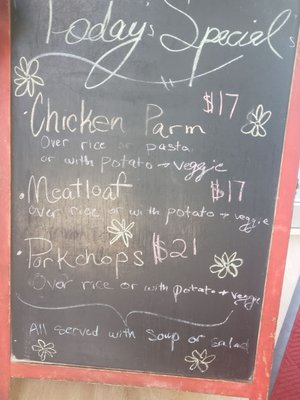 Today's Specials
Chicken Parm $17
Over rice or pasta
or with potato + veggie
Meatloaf $17
over rice or with potato + veggie
Porkchops $21
Over rice or with potato + veggie
All served with Soup or Salad